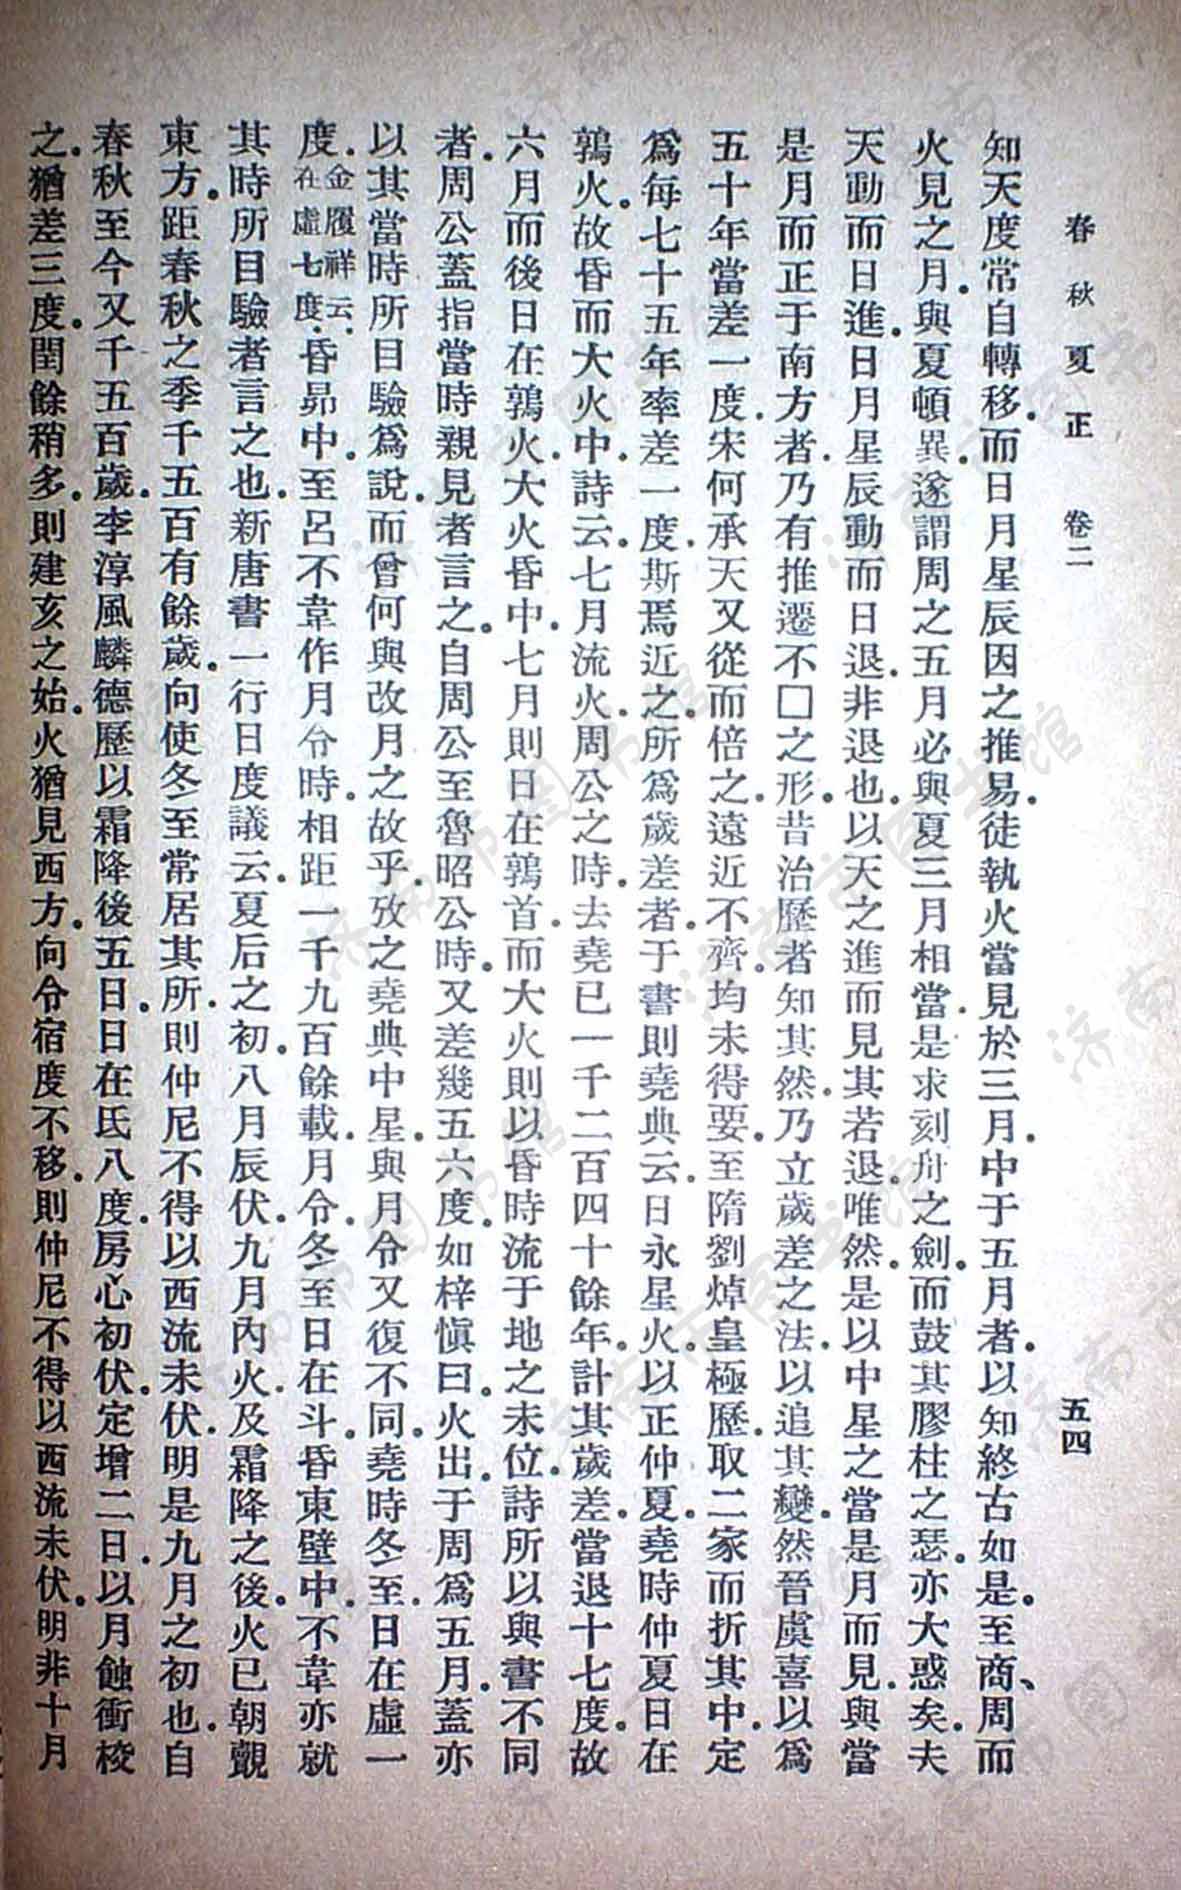 春秋夏正　卷二　五四
知天度常自轉移。而日月星辰因之推易。徒執火當見於三月。中于五月者。以知終古如是。至商、周而
火見之月。與夏頓異。遂謂周之五月必與夏三月相當。是求刻舟之劍。而鼓其膠柱之瑟。亦大惑矣。夫
天動而日進。日月星辰動而日退。非退也。以天之進而見其若退。唯然。是以中星之當是月而見。與當
是月而正于南方者。乃有推遷不□之形。昔治歷者知其然。乃立歲差之法。以追其變。然晉虞喜以爲
五十年當差一度。宋何承天又從而倍之。遠近不齊。均未得要。至隋劉焯皇極歷。取二家而折其中。定
爲每七十五年率差一度。斯焉近之。所爲歲差者。于書則堯典云。日永星火。以正仲夏。堯時仲夏日在
鶉火。故昏而大火中。詩云。七月流火。周公之時。去堯已一千二百四十餘年。計其歲差。當退十七度。故
六月而後日在鶉火。大火昏中。七月則日在鶉首。而大火則以昏時流于地之未位。詩所以與書不同
者。周公蓋指當時親見者言之。自周公至魯昭公時。又差幾五六度。如梓愼曰。火出。于周爲五月。蓋亦
以其當時所目驗爲說。而曾何與改月之故乎。攷之堯典中星。與月令又復不同。堯時冬至。日在虛一
度。金履祥云。在虛七度。昏昴中。至呂不韋作月令時。相距一千九百餘載。月令。冬至日在斗。昏東壁中。不韋亦就
其時所目驗者言之也。新唐書一行日度議云。夏后之初。八月辰伏。九月內火。及霜降之後。火已朝覿
東方。距春秋之季千五百有餘歲。向使冬至常居其所。則仲尼不得以西流未伏。明是九月之初也。自
春秋至今又千五百歲。李淳風麟德歷以霜降後五日。日在氐八度。房心初伏。定增二日。以月蝕衝校
之。猶差三度。閏餘稍多。則建亥之始。火猶見西方。向令宿度不移。則仲尼不得以西流未伏。明非十月